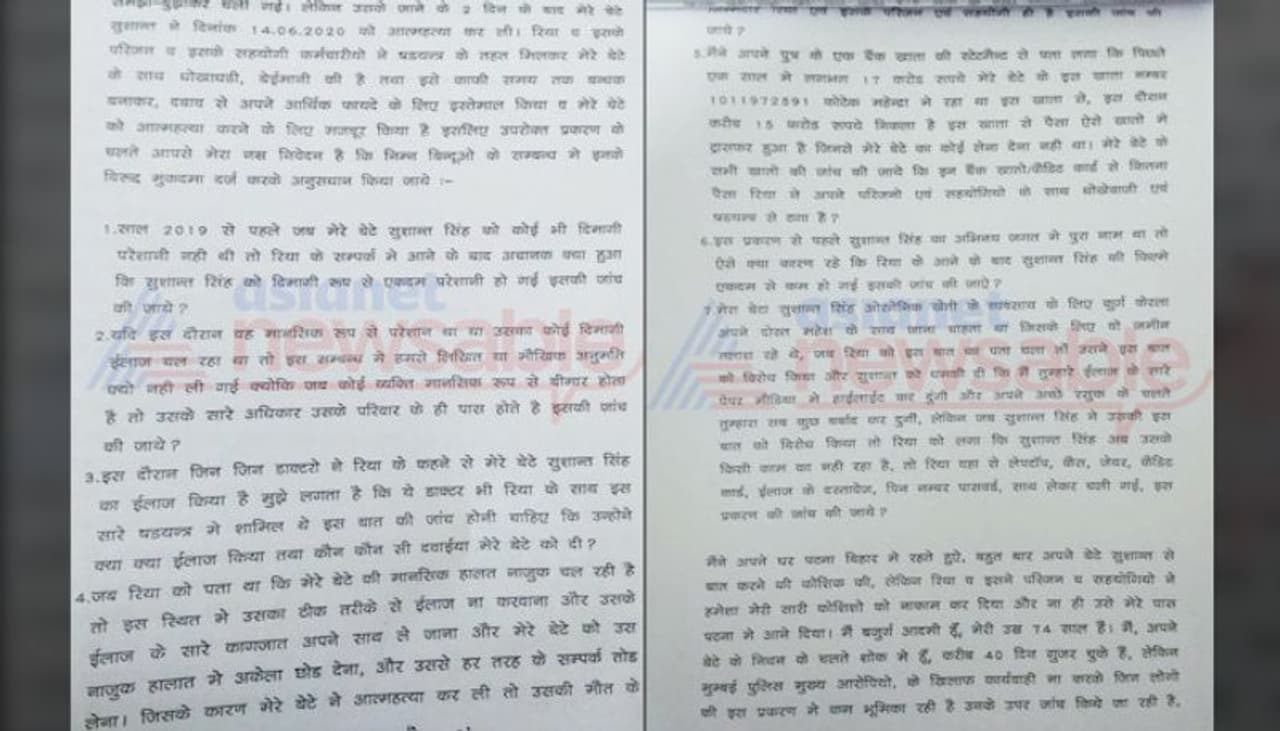 समझा-बुझाकर चली गई। लेकिन उसके जाने के 2 दिन के बाद मेरे बेटे
सुशान्त ने दिनांक 14.06.2020 को आत्महत्या कर ली। रिया व इसके
परिजन व इसके सहयोगी कर्मचारीयो ने षडयन्त्र के तहत मिलकर मेरे बेटे
के साथ धोखाधडी, बेईमानी की है तथा इसे काफी समय तक बन्धक
बनाकर, दवाब से अपने आर्थिक फायदे के लिए इस्तेमाल किया व मेरे बेटे
को आत्महत्या करने के लिए मजबूर किया है इसलिए उपरोक्त प्रकरण के
चलते आपसे मेरा नम्र निवेदन है कि निम्न बिन्दूओ के सम्बन्ध मे इनके
विरूद मुकदमा दर्ज करके अनुसंधान किया जाये :-
1.साल 2019 से पहले जब मेरे बेटे सुशान्त सिंह को कोई भी दिमागी
परेशानी नही थी तो रिया के सम्पर्क मे आने के बाद अचानक क्या हुआ
कि सुशान्त सिंह को दिमागी रूप से एकदम परेशानी हो गई इसकी जांच
की जाये ?
2.यदि इस दौरान वह मानसिक रूप से परेशान था या उसका कोई दिमागी
ईलाज चल रहा था तो इस सम्बन्ध मे हमसे लिखित या मौखिक अनुमति
क्यो नही ली गई क्योकि जब कोई व्यक्ति मानसिक रूप से बीमार होता
है तो उसके सारे अधिकार उसके परिवार के ही पास होते है इसकी जांच
की जाये ?
3.इस दौरान जिन जिन डाक्टरो ने रिया के कहने से मेरे बेटे सुशान्त सिंह
का ईलाज किया है मुझे लगता है कि ये डाक्टर भी रिया के साथ इस
सारे षडयन्त्र मे शामिल थे इस बात की जांच होनी चाहिए कि उन्होने
क्या क्या ईलाज किया तथा कौन कौन सी दवाईया मेरे बेटे को दी ?
4.जब रिया को पता था कि मेरे बेटे की मानसिक हालत नाजुक चल रही है
तो इस स्थित मे उसका टीक तरीके से ईलाज ना करवाना और उसके
ईलाज के सारे कागजात अपने साथ ले जाना और मेरे बेटे को उस
नाजुक हालात मे अकेला छोड देना, और उससे हर तरह के सम्पर्क तोड
लेना। जिसके कारण मेरे बेटे ने आत्महत्या कर ली तो उसकी मौत के
रिया एवं इसके परिजन एवं सहयोगी ही है इसकी जांच की
जाये ?
5.मैने अपने पुत्र के एक बैंक खाता की स्टेटमैन्ट से पता लगा कि पिछले
एक साल मे लगभग 17 करोड रूपये मेरे बेटे के इस खाता नम्बर
1011972591 कोटेक महेन्द्रा मे रहा था इस खाता से, इस दौरान
करीब 15 करोड रूपये निकला है इस खाता से पैसा ऐसे खातो मे
ट्रासफर हुआ है जिनसे मेरे बेटे का कोई लेना देना नही था। मेरे बेटे के
सभी खातो की जांच की जाये कि इन बैंक खातो/कैडिट कार्ड से कितना
पैसा रिया ने अपने परिजनो एवं सहयोगियो के साथ धोखेबाजी एवं
षडयन्त्र से ठगा है ?
6.इस प्रकरण से पहले सुशान्त सिंह का अभिनय जगत मे पुरा नाम था तो
ऐसे क्या कारण रहे कि रिया के आने के बाद सुशान्त सिंह की फिल्मे
एकदम से कम हो गई इसकी जांच की जाऐ ?
7.मेरा बेटा सुशान्त सिंह ओरगेनिक खेती के व्यवसाय के लिए कुर्ग केरला
अपने दोस्त महेश के साथ जाना चाहता था जिसके लिए वो जमीन
तलाश रहे थे, जब रिया को इस बात का पता चला तो उसने इस बात
को विरोध किया और सुशान्त को धमकी दी कि मैं तुम्हारे ईलाज के सारे
पेपर मीडिया मे हाईलाईट कर दुंगी और अपने अच्छे रसूक के चलते
तुम्हारा सब कुछ बर्बाद कर दुगी, लेकिन जब सुशान्त सिंह ने उसकी इस
बात को विरोध किया तो रिया को लगा कि सुशान्त सिंह अब उसके
किसी काम का नही रहा है, तो रिया वहा से लेपटॉप, कैस, जेवर, कैडिट
कार्ड, ईलाज के दस्तावेज, पिन नम्बर पासवर्ड, साथ लेकर चली गई, इस
प्रकरण की जांच की जाये ?
मैंने अपने घर पटना बिहार मे रहते हुऐ, बहुत बार अपने बेटे सुशान्त से
बात करने की कोशिक की, लेकिन रिया व इसने परिजन व सहयोगियो ने
हमेशा मेरी सारी कोशिशो को नाकाम कर दिया और ना ही उसे मेरे पास
पटना मे आने दिया। मैं बजुर्ग आदमी हूँ, मेरी उम्र 74 साल है। मैं, अपने
बेटे के निधन के चलते शोक मे हूँ, करीब 40 दिन गुजर चुके है, लेकिन
मुम्बई पुलिस मुख्य आरोपियो, के खिलाफ कार्यवाही ना करके जिन लोगो
की इस प्रकरण मे कम भूमिका रही है उनके उपर जांच किये जा रही है,
asianet
newsable
asianet
newsable